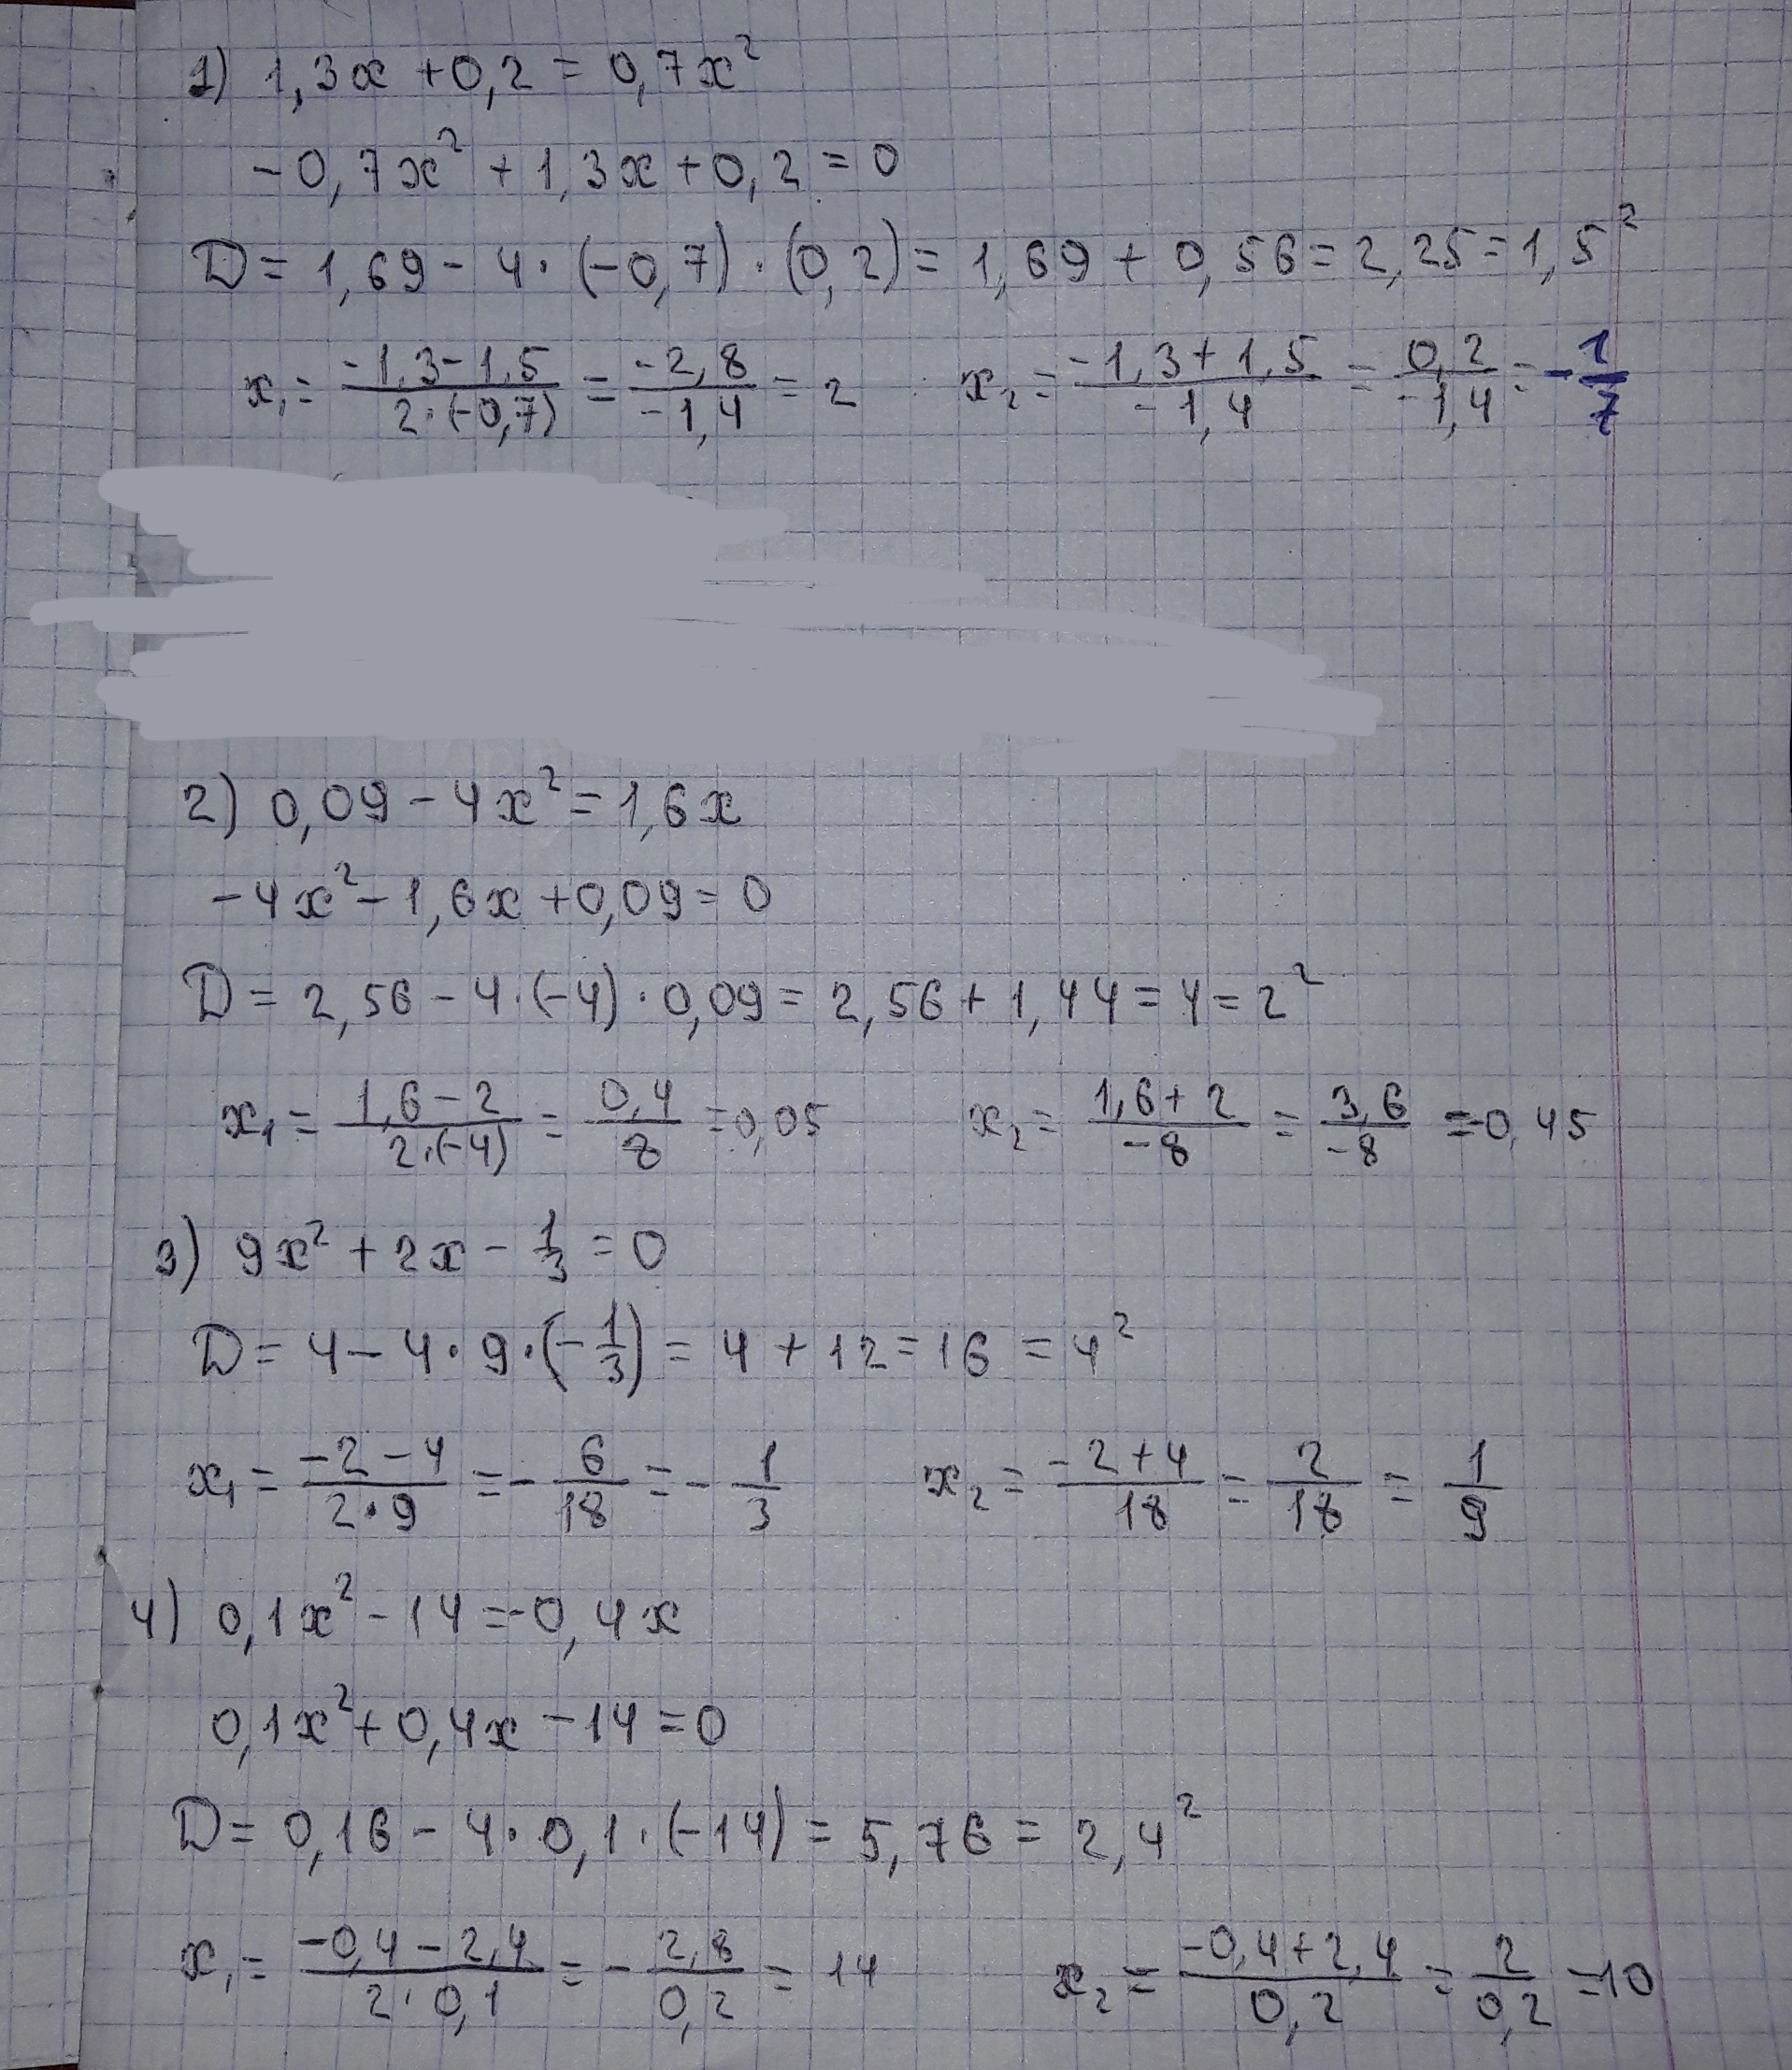 1) 1,3x + 0,2 = 0,7x²
-0,7x² + 1,3x + 0,2 = 0
D = 1,69 - 4 · (-0,7) · (0,2) = 1,69 + 0,56 = 2,25 = 1,5²
x₁ = (-1,3-1,5)/(2·(-0,7)) = (-2,8)/(-1,4) = 2 x₂ = (-1,3+1,5)/(-1,4) = 0,2/(-1,4) = -1/7
2) 0,09 - 4x² = 1,6x
-4x² - 1,6x + 0,09 = 0
D = 2,56 - 4·(-4)·0,09 = 2,56 + 1,44 = 4 = 2²
x₁ = (1,6-2)/(2·(-4)) = 0,4/8 = 0,05 x₂ = (1,6+2)/(-8) = 3,6/(-8) = -0,45
3) 9x² + 2x - 1/3 = 0
D = 4 - 4·9·(-1/3) = 4 + 12 = 16 = 4²
x₁ = (-2-4)/(2·9) = -6/18 = -1/3 x₂ = (-2+4)/18 = 2/18 = 1/9
4) 0,1x² - 14 = -0,4x
0,1x² + 0,4x - 14 = 0
D = 0,16 - 4·0,1·(-14) = 5,76 = 2,4²
x₁ = (-0,4-2,4)/(2·0,1) = -2,8/0,2 = 14 x₂ = (-0,4+2,4)/0,2 = 2/0,2 = 10